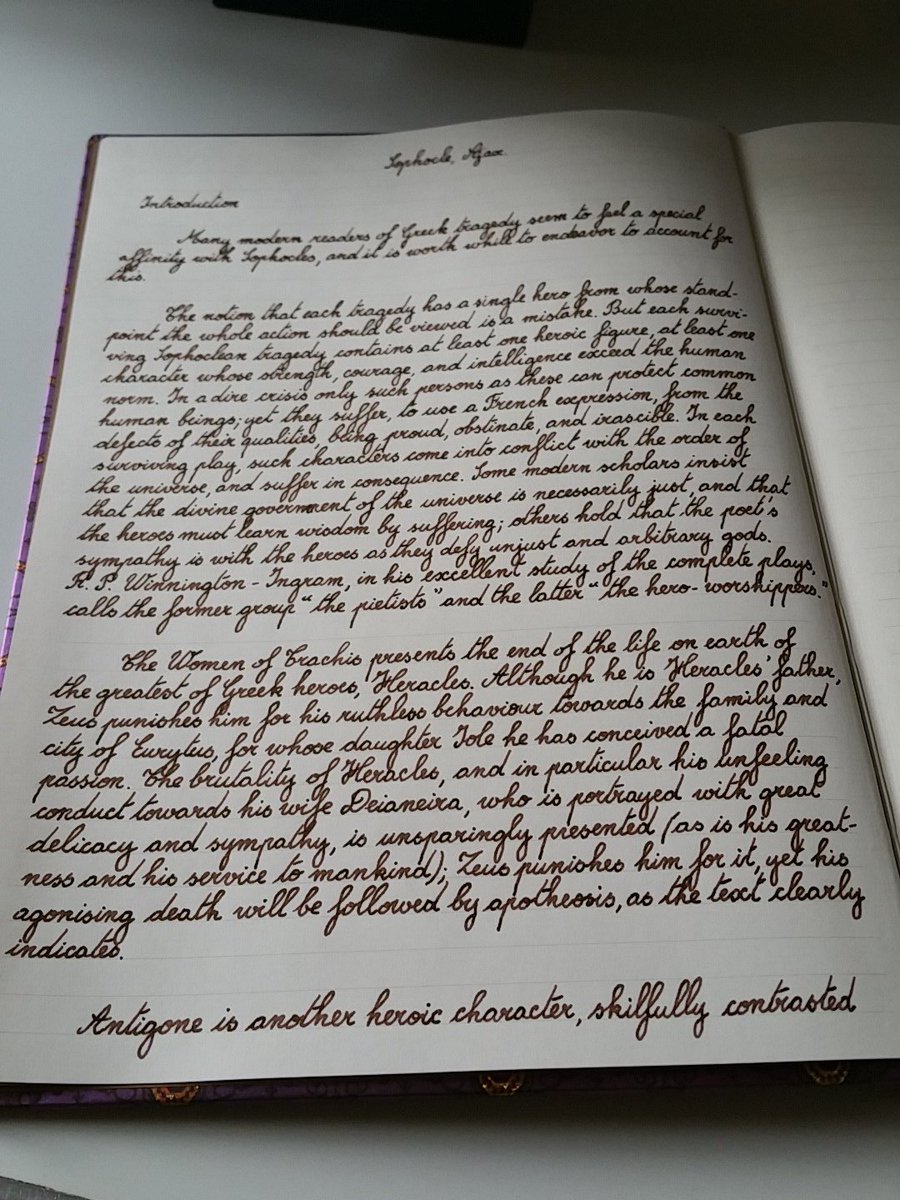 Sophocle, Ajax.
Introduction
Many modern readers of Greek tragedy seem to feel a special
affinity with Sophocles, and it is worth whill to endeavor to account for
this.
The notion that each tragedy has a single hero from whose stand-
point the whole action should be viewed is a mistake. But each survi-
ving Sophoclean tragedy contains at least one heroic figure, at least one
character whose strength, courage, and intelligence exceed the human
norm. In a dire crisis only such persons as these can protect common
human beings; yet they suffer, to use a French expression, from the
defects of their qualities, being proud, obstinate, and irascible. In each
surviving play, such characters come into conflict with the order of
the universe, and suffer in consequence. Some modern scholars insist
that the divine government of the universe is necessarily just, and that
the heroes must learn wisdom by suffering; others hold that the poet's
sympathy is with the heroes as they defy unjust and arbitrary gods.
R. P. Winnington-Ingram, in his excellent study of the complete plays,
calls the former group "the pietists" and the latter "the hero-worshippers."
The Women of Trachis presents the end of the life on earth of
the greatest of Greek heroes, Heracles. Although he is Heracles' father,
Zeus punishes him for his ruthless behaviour towards the family and
city of Eurytus, for whose daughter Iole he has conceived a fatal
passion. The brutality of Heracles, and in particular his unfeeling
conduct towards his wife Deianeira, who is portrayed with great
delicacy and sympathy, is unsparingly presented (as is his great-
ness and his service to mankind); Zeus punishes him for it, yet his
agonising death will be followed by apotheosis, as the text clearly
indicates.
Antigone is another heroic character, skilfully contrasted